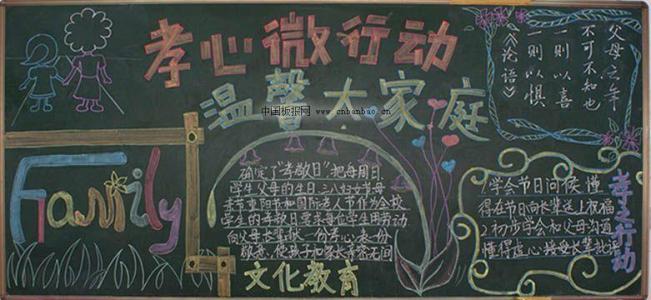 孝心微行动
温馨大家庭
中国板报网 www.cnbanbao.cn
父母之年
不可不知也
一则以喜
一则以惧
《论语》
Family
确定了“孝敬日”把每周日
学生父母的生日三八妇女节母
亲节重阳节和国际老人节作为全校
学生的孝敬日要求每位学生用劳动
向父母长辈献一份孝心表一份
敬意、使孩子和家长亲密无间
文化教育
1.学会节日问候,懂
得在节日向长辈送上祝福
2初步学会和父母沟通
懂得虚心接母长辈批评
孝之行动